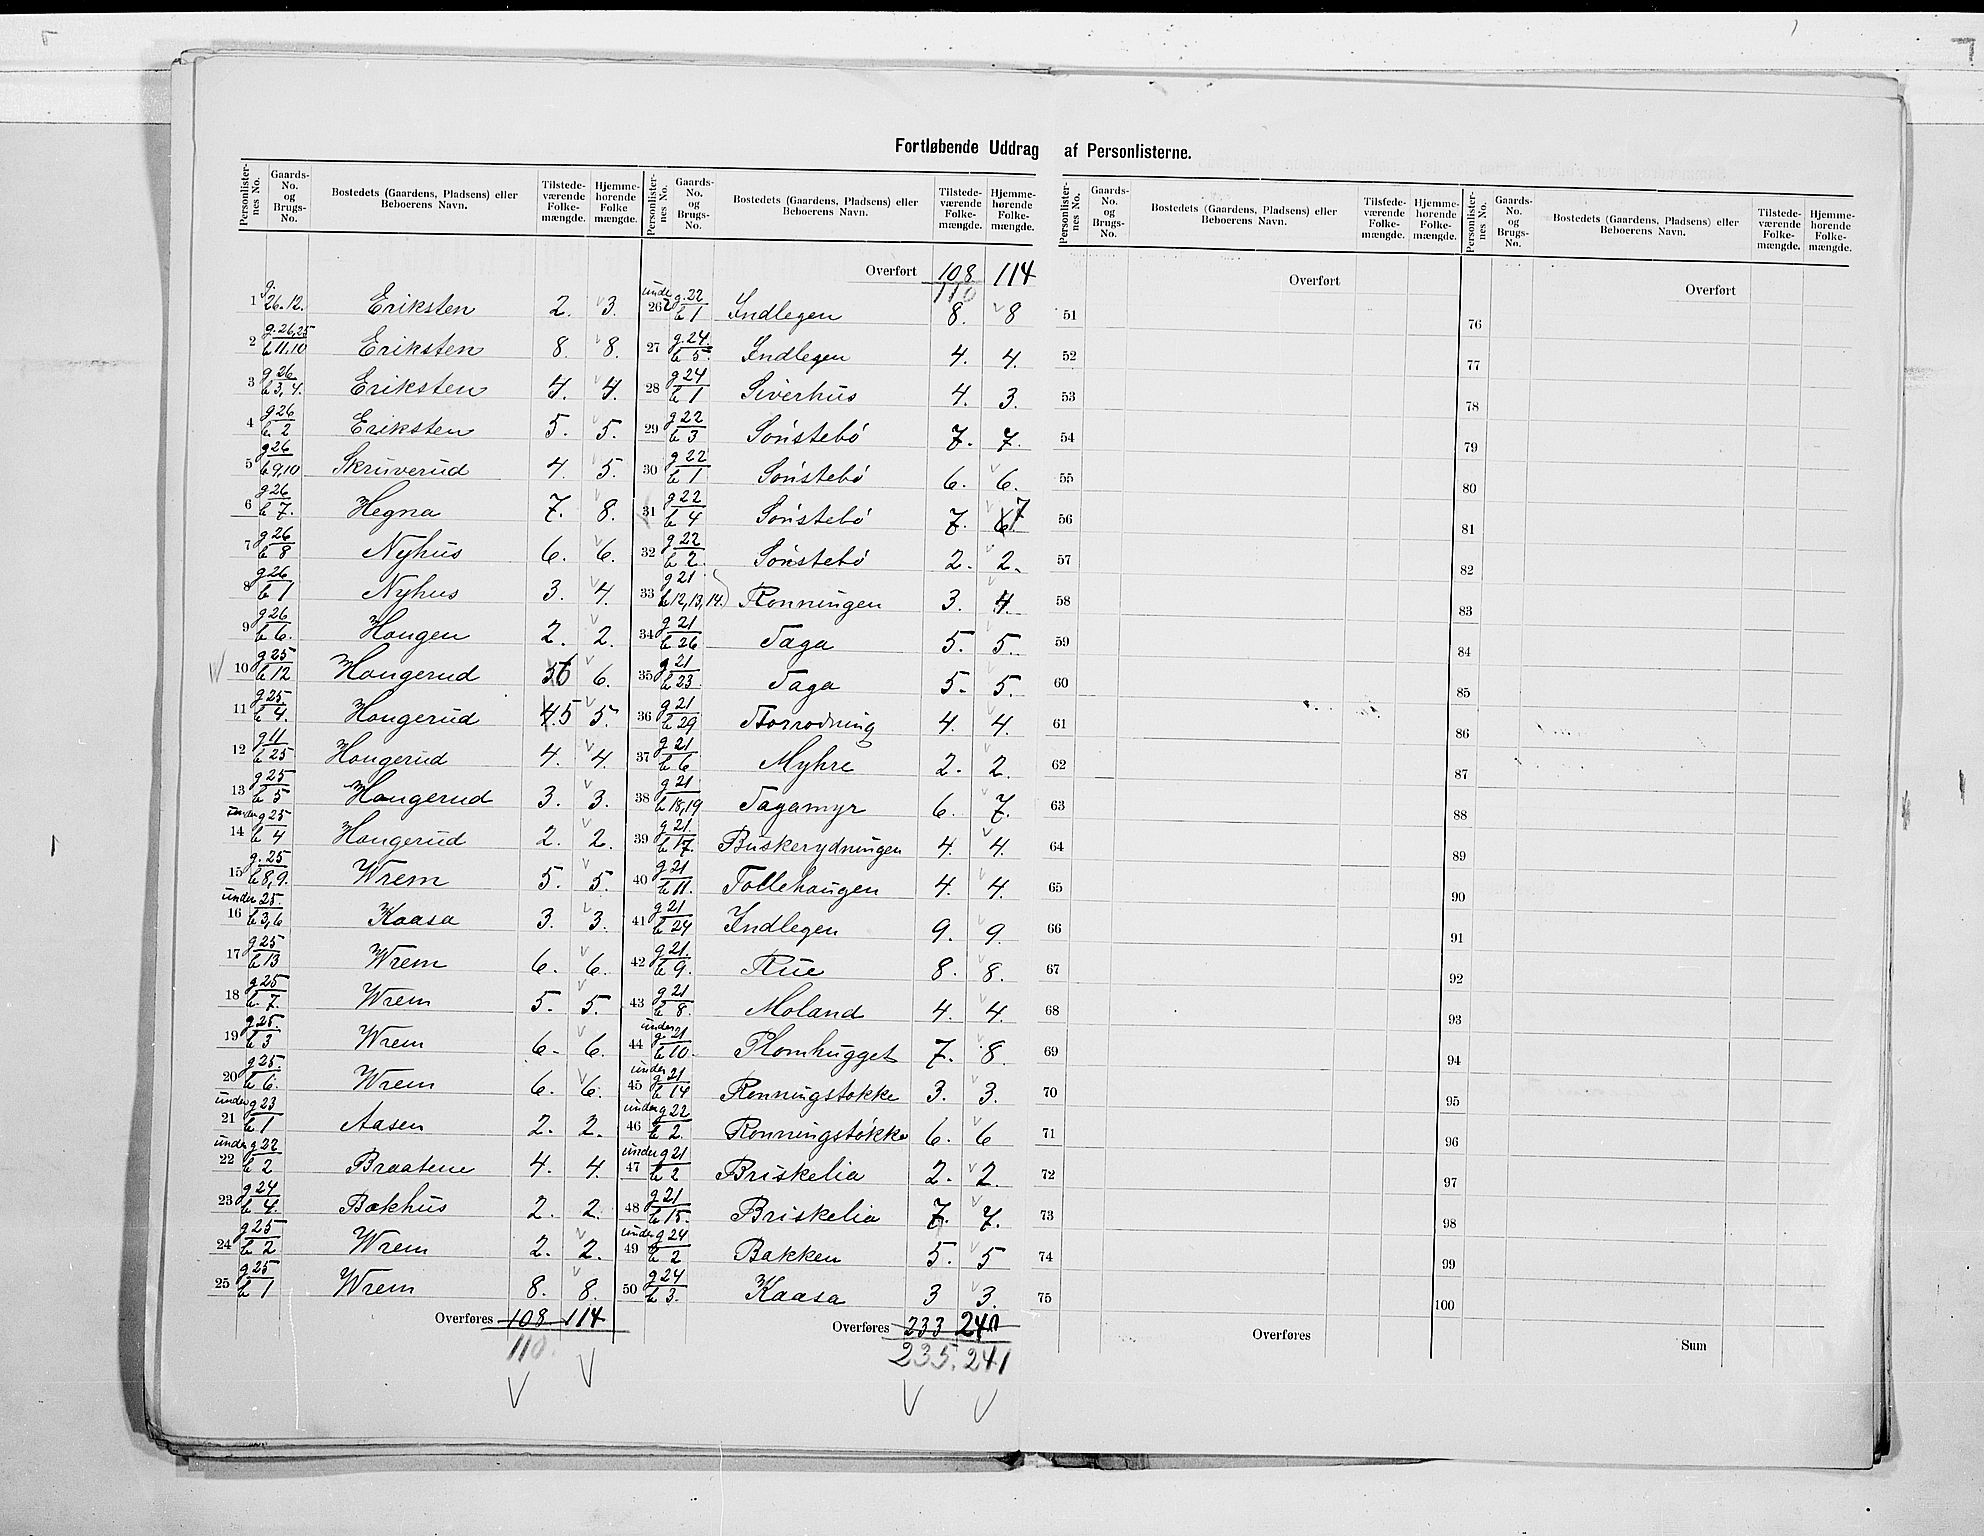 Fortløbende Uddrag af Personlisterne.
Personlisternes No. | Gaards-No. og Brugs-No. | Bostedets (Gaardens, Pladsens) eller Beboerens Navn. | Tilstedeværende Folkemængde. | Hjemmehørende Folkemængde.
1 g. 26.12. Eriksten 2. 3.
2 g.26,25 b11,10 Eriksten 8. 8.
3 g26 b3,4. Eriksten 4. 4.
4 g26 b. 2 Eriksten 5. 5.
5 g26 b9,10 Skruverud 4. 5.
6 g26 b 7. Hegna 7. 8.
7 g26 b 8 Nyhus 6. 6.
8 g26 b 1 Nyhus 3. 4.
9 g26 b 6. Hougen 2. 2.
10 g25 b 12 Hougerud 5 6 6.
11 g25. b 4. Hougerud 4.5 5.
12 g11 b25 Hougerud 4. 4.
13 g25 b 5 Hougerud 3. 3.
14 under g25 b 4 Hougerud 2. 2.
15 g.25 b8,9. Wrem 5. 5.
16 under 25. b3,6 Kaasa 3. 3.
17 g25 b13 Wrem 6. 6.
18 g25 b. 7. Wrem 5. 5.
19 g25. b 3 Wrem 6. 6.
20 g25. b 6. Wrem 6. 6.
21 under g23 b 1 Aasen 2. 2.
22 under g22 b 2 Braatene 4. 4.
23 g24 b 4. Bakhus 2. 2.
24 g25 b 2 Wrem 2. 2.
25 g25 b 1 Wrem 8. 8.
Overføres 108 114
110.
Overført 108 114
110
26 under g.22 b 1 Indlegen 8. 8
27 g.24. b 5. Indlegen 4. 4.
28 g24 b 1 Siverhus 4. 3.
29 g22 b 3 Sønstebø 7. 7.
30 g22 b 1 Sønstebø 6. 6.
31 g22 b 4 Sønstebø 7. 6 7
32 g22 b 2. Sønstebø 2. 2.
33 g21 b12,13,14. Rønningen 3. 4.
34 g21 b26 Taga 5. 5.
35 g21 b23. Taga 5. 5.
36 g21 b29 Storrodning 4. 4.
37 g21 b 6 Myhre 2. 2.
38 g21 b18,19 Tagamyr 6. 7.
39 g21. b17. Buskerydningen 4. 4.
40 g21 b11. Tollehaugen 4. 4.
41 g21 b24 Indlegen 9. 9.
42 g21. b 9. Rue 8. 8.
43 g21 b 8. Moland 4. 4.
44 under g.21 b10. Plomhugget 7. 8.
45 under g21 b14 Rønningstøkke 3. 3.
46 under g22 b 2. Rønningstøkke 6. 6
47 under g21 b 2 Briskelia 2. 2.
48 g21 b15. Briskelia 7. 7.
49 under g24 b 2 Bakken 5. 5
50 g24 b 3. Kaasa 3 3.
Overføres 233 240
235. 241
Personlisternes No. | Gaards-No. og Brugs-No. | Bostedets (Gaardens, Pladsens) eller Beboerens Navn. | Tilstedeværende Folkemængde. | Hjemmehørende Folkemængde.
Overført
51
52
53
54
55
56
57
58
59
60
61
62
63
64
65
66
67
68
69
70
71
72
73
74
75
Overføres
Overført
76
77
78
79
80
81
82
83
84
85
86
87
88
89
90
91
92
93
94
95
96
97
98
99
100
Sum